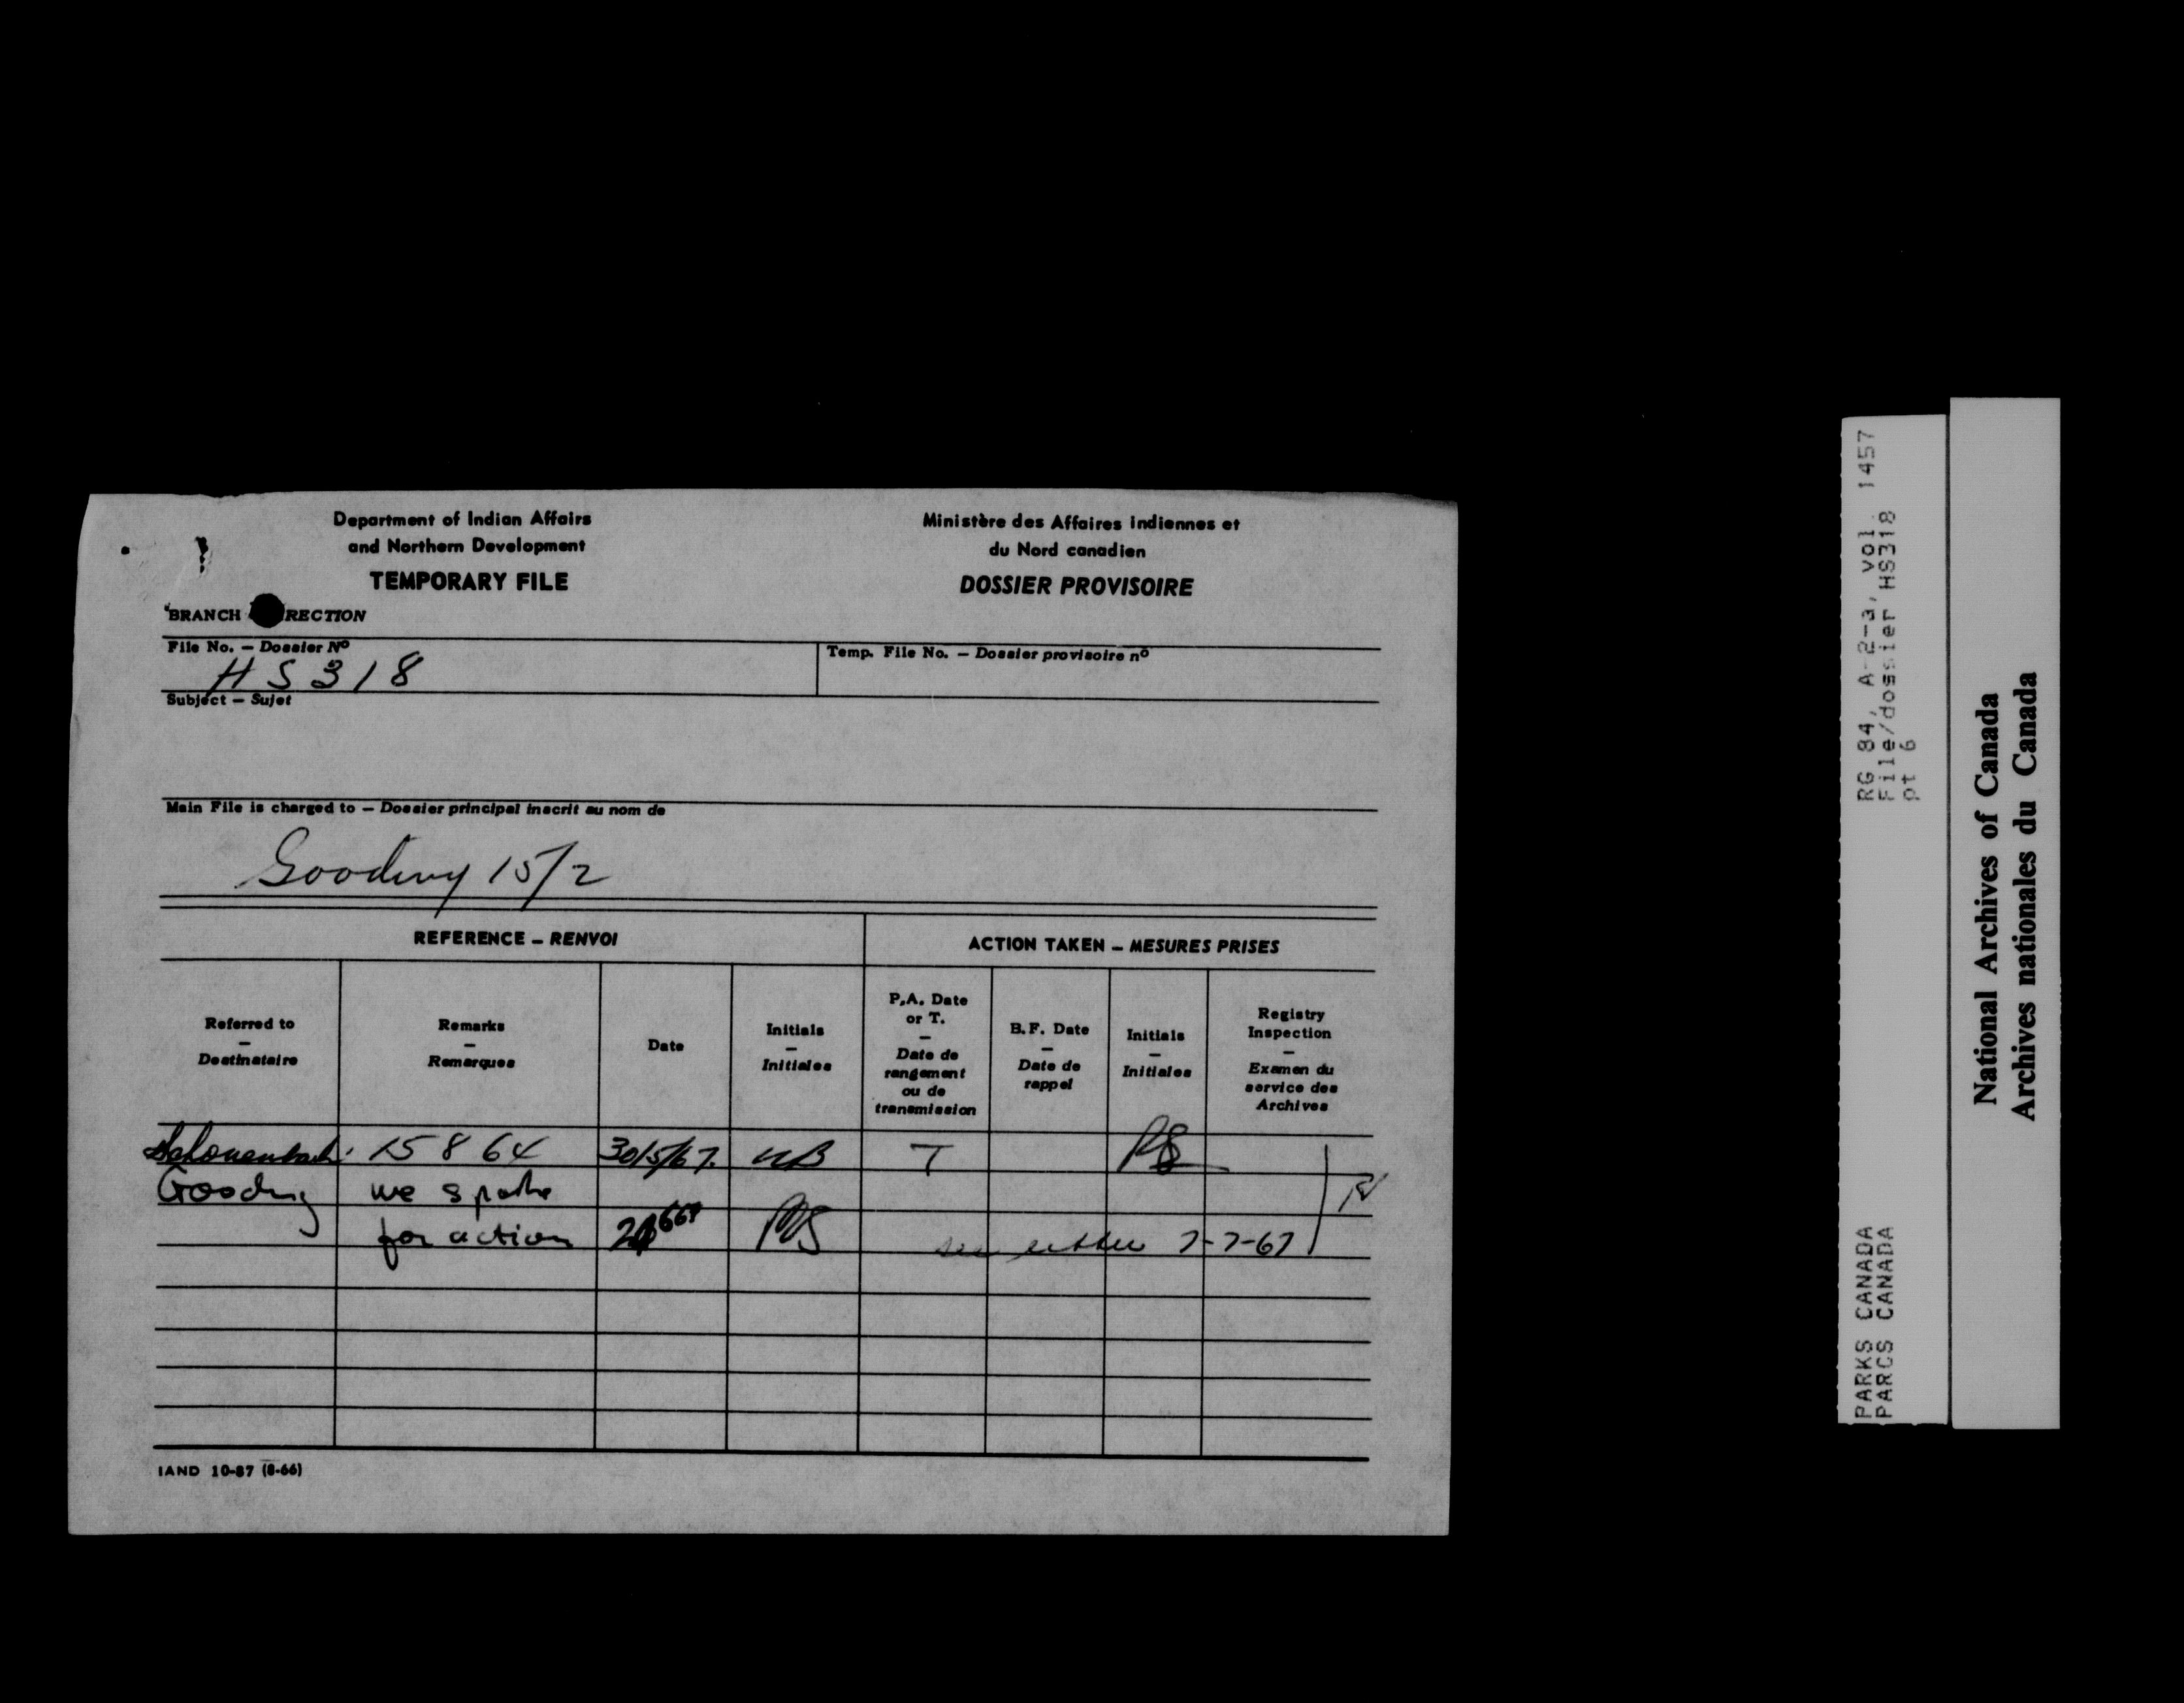 Department of Indian Affairs
and Northern Development
TEMPORARY FILE
Ministère des Affaires indiennes et
du Nord canadien
DOSSIER PROVISOIRE
BRANCH RECTION
File No. — Dossier Nº
HS318
Temp. File No. — Dossier provisoire nº
Subject — Sujet
Main File is charged to — Dossier principal inscrit au nom de
Gooding 15/2
REFERENCE — RENVOI
ACTION TAKEN — MESURES PRISES
Referred to
—
Destinataire
Remarks
—
Remarques
Date
Initials
—
Initiales
P.A. Date
or T.
—
Date de
rangement
ou de
transmission
B.F. Date
—
Date de
rappel
Initials
—
Initiales
Registry
Inspection
—
Examen du
service des
Archives
15864 30/5/67. T
Gooding we spoke
for action 7-7-67
IAND 10-87 (8-66)
RG 84, A-2-a, vol. 1457
File/dossier HS318
pt 6
PARKS CANADA
PARCS CANADA
National Archives of Canada
Archives nationales du Canada